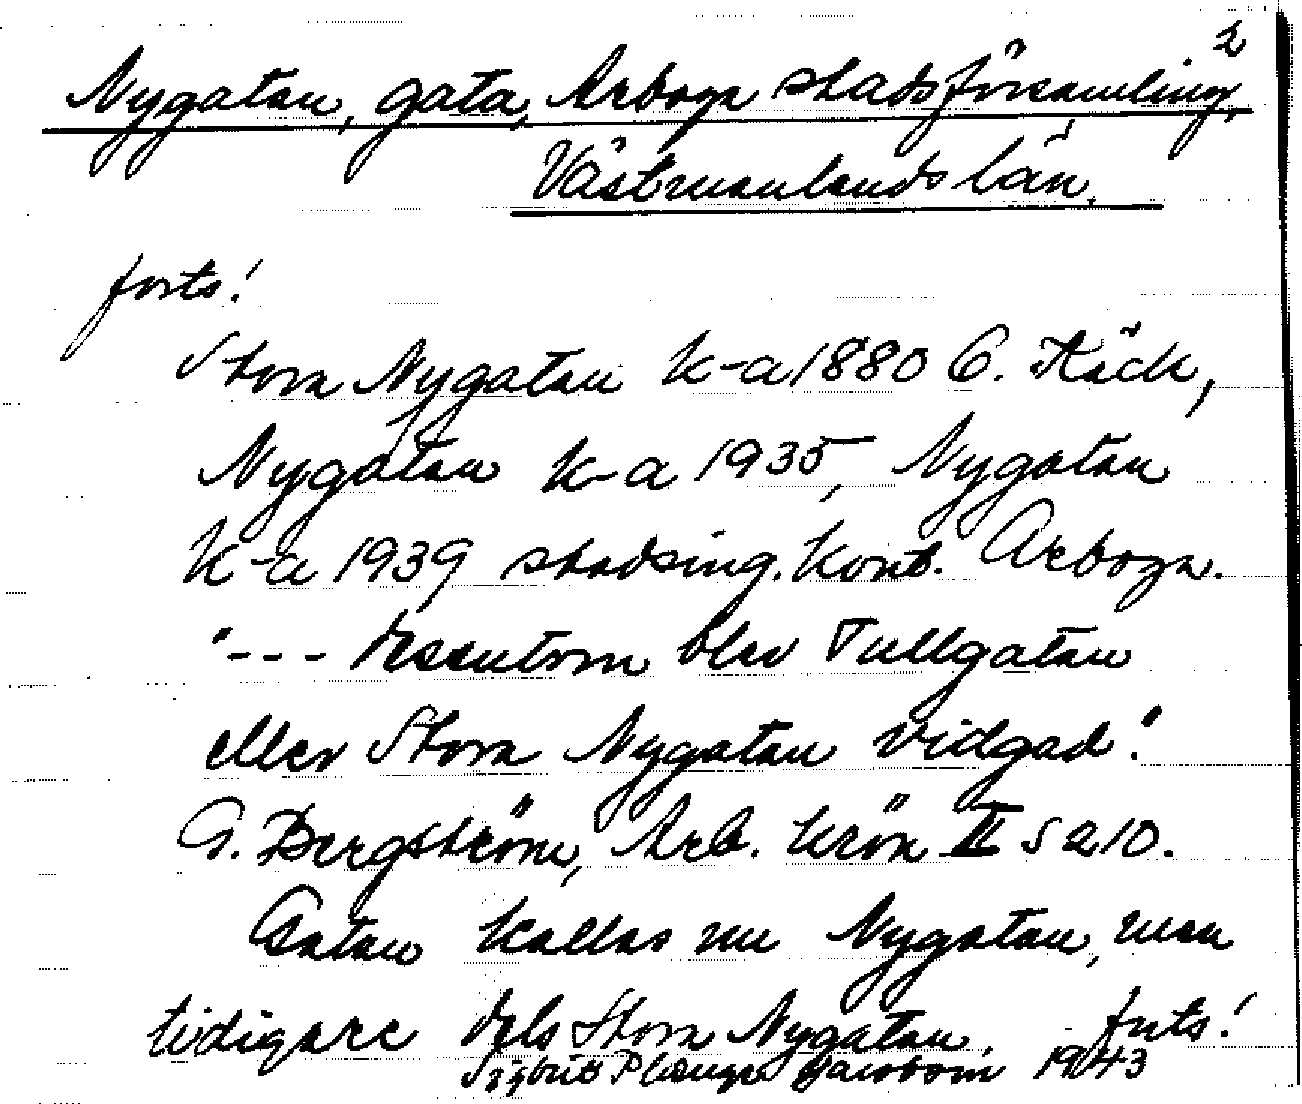 2
Nygatan, gata, Arboga stadsförsamling,
Västmanlands län.
forts!
Stora Nygatan k-a 1880 C. Käck,
Nygatan k-a 1935, Nygatan
k-a 1939 stadsing. kont. Arboga.
"--- dessutom blev Tullgatan
eller Stora Nygatan vidgad."
G. Bergström, Arb. krön II s 210.
Gatan kallas nu Nygatan, men
tidigare dels Stora Nygatan. forts!
Sigbrit Plænge Jacobson 1943